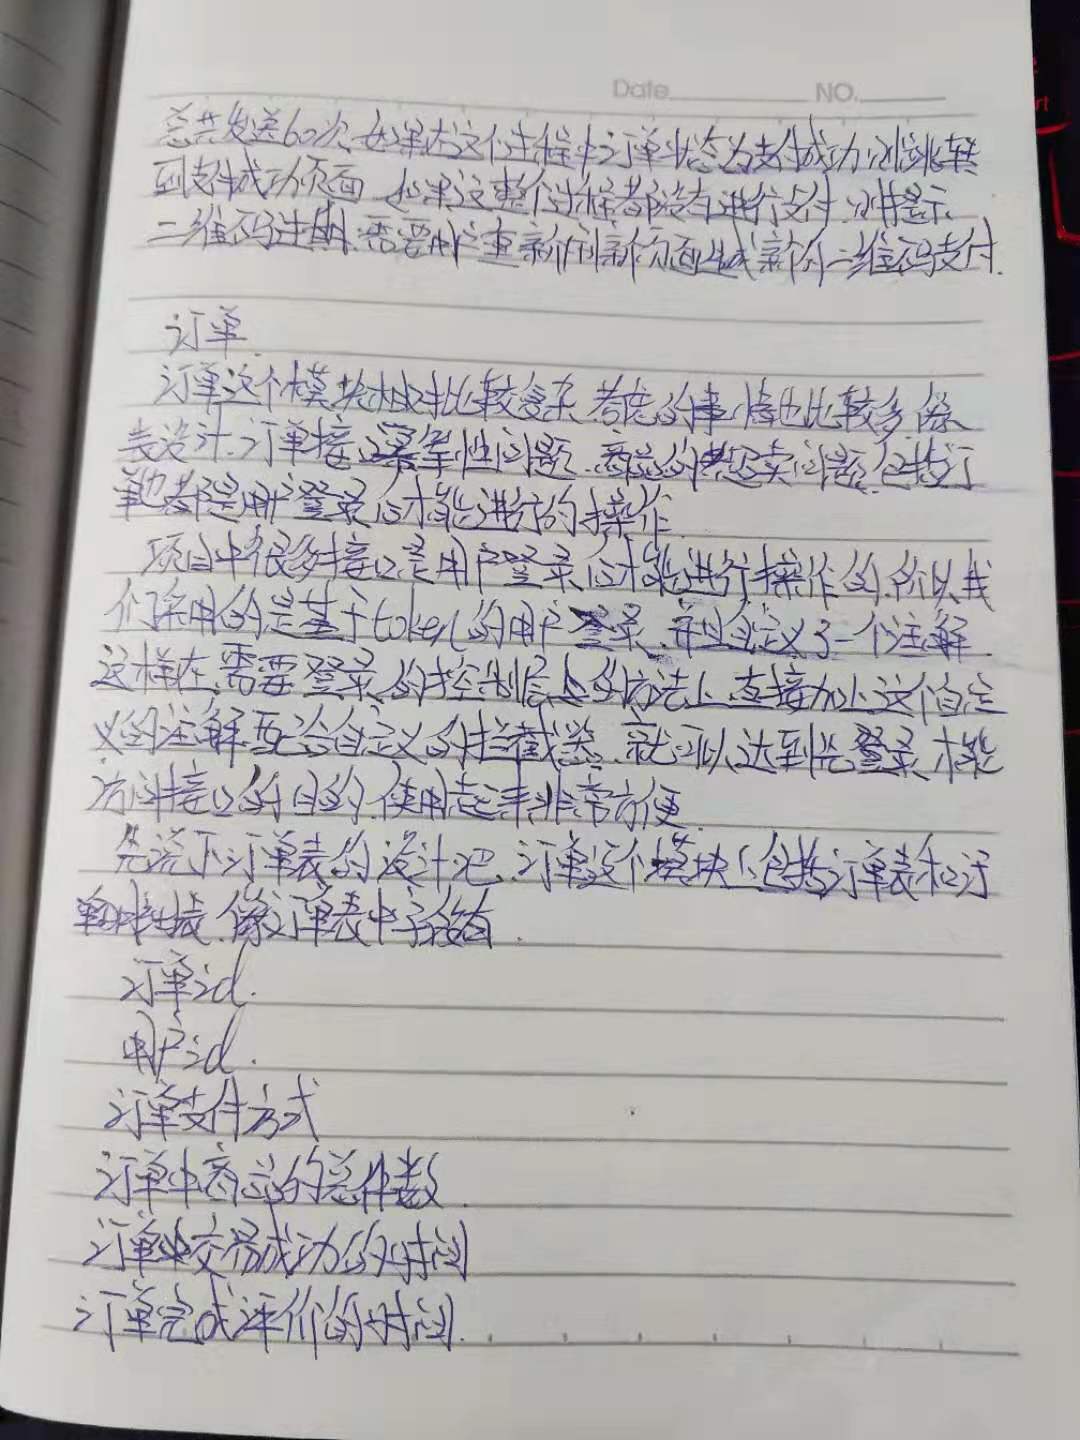 Date NO.
总共发送60次,如果在这个过程中订单状态为支付成功,则跳转
到支付成功页面,如果这整个过程都没有进行支付,则提示
二维码过期,需要用户重新刷新页面生成新的二维码支付.
订单.
订单这个模块相对比较复杂,考虑的事情也比较多,像
表设计,订单接口幂等性问题,商品的超卖问题,包括订
单也都是用户登录后才能进行的操作.
项目中很多接口是用户登录后才能进行操作的,所以我
们采用的是基于token的用户登录,并且自定义了一个注解.
这样在需要登录的控制层上的方法上,直接加上这个自定
义的注解,配合自定义的拦截器,就可以达到先登录,才能
访问接口的目的,使用起来非常方便.
先说下订单表的设计吧,订单这个模块,包括订单表和订
单表,像订单表中字段有.
订单id.
用户id.
订单支付方式
订单中商品的总件数.
订单中交易成功的时间
订单完成评价的时间.